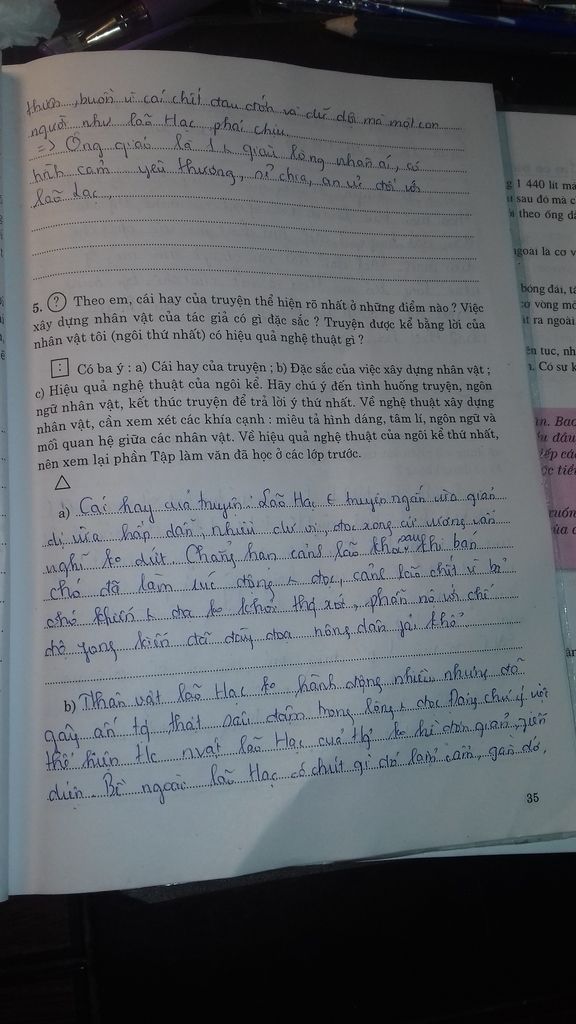 thươ..., buồn vì cái chết đau đớn và dữ dội mà một con
người như lão Hạc phải chịu.
=> Ông giáo là 1 giàu lòng nhân ái, có
tình cảm yêu thương, sẻ chia, an ủi đối với
lão Hạc.
5. (?) Theo em, cái hay của truyện thể hiện rõ nhất ở những điểm nào ? Việc
xây dựng nhân vật của tác giả có gì đặc sắc ? Truyện được kể bằng lời của
nhân vật tôi (ngôi thứ nhất) có hiệu quả nghệ thuật gì ?
: Có ba ý : a) Cái hay của truyện ; b) Đặc sắc của việc xây dựng nhân vật ;
c) Hiệu quả nghệ thuật của ngôi kể. Hãy chú ý đến tình huống truyện, ngôn
ngữ nhân vật, kết thúc truyện để trả lời ý thứ nhất. Về nghệ thuật xây dựng
nhân vật, cần xem xét các khía cạnh : miêu tả hình dáng, tâm lí, ngôn ngữ và
mối quan hệ giữa các nhân vật. Về hiệu quả nghệ thuật của ngôi kể thứ nhất,
nên xem lại phần Tập làm văn đã học ở các lớp trước.
△
a) Cái hay của truyện: Lão Hạc truyện ngắn vừa giản
dị vừa hấp dẫn, nhiều dư vị, đọc xong cứ vương vấn
nghĩ ko dứt. Chẳng hạn cảnh lão khóc sau khi bán
chó đã làm xúc động đọc, cảnh lão chết vì bả
chó khiến đọc ko khỏi thọ xót, phẫn nộ với chế
độ pong kiến đã đầy đọa nông dân
b) Nhân vật lão Hạc ko hành động nhiều nhưng đã
gây ấn tg thật sâu đậm trong lòng đọc. Đáng chú ý
thể hiện nvật lão Hạc của ko hề đơn giản, giản
diện. Bề ngoài lão Hạc có chút gì đó lẩm cẩm, gàn dở,
35
g 1 440 lít má
sau đó mà c
theo ống dẫ
ngoài là cơ v
bóng đái, tá
cơ vòng mó
ra ngoài
ên tục, nh
Có sự k
Bao
đâu
iếp cá
ọc tiế